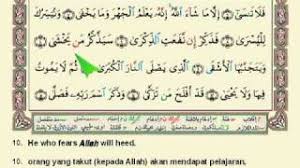 فَلَا تَنسَىٰ ۝ إِلَّا مَا شَاءَ اللَّهُ إِنَّهُ يَعْلَمُ الْجَهْرَ وَمَا يَخْفَىٰ ۝ وَنُيَسِّرُكَ
لِلْيُسْرَىٰ ۝ فَذَكِّرْ إِن نَّفَعَتِ الذِّكْرَىٰ ۝ سَيَذَّكَّرُ مَن يَخْشَىٰ ۝
وَيَتَجَنَّبُهَا الْأَشْقَى ۝ الَّذِي يَصْلَى النَّارَ الْكُبْرَىٰ ۝ ثُمَّ لَا يَمُوتُ
فِيهَا وَلَا يَحْيَىٰ ۝ قَدْ أَفْلَحَ مَن تَزَكَّىٰ ۝ وَذَكَرَ اسْمَ رَبِّهِ فَصَلَّىٰ ۝
10. He who fears Allah will heed,
10. orang yang takut (kepada Allah) akan mendapat pelajaran,